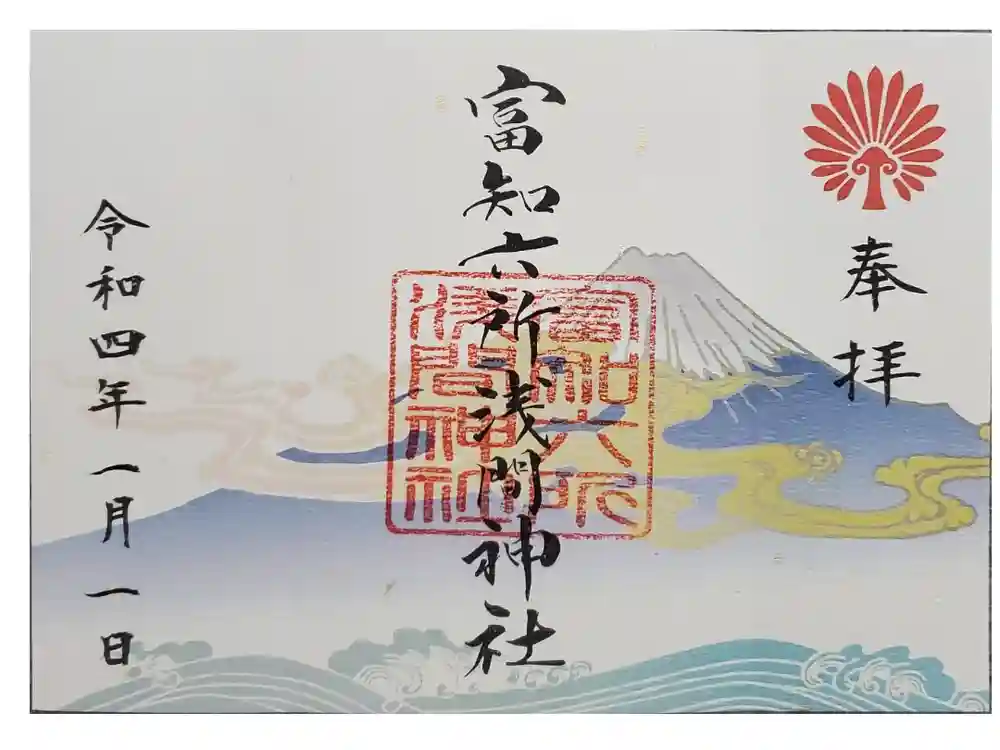 奉拝
富知六所浅間神社
富知六所
浅間神社
令和四年一月一日